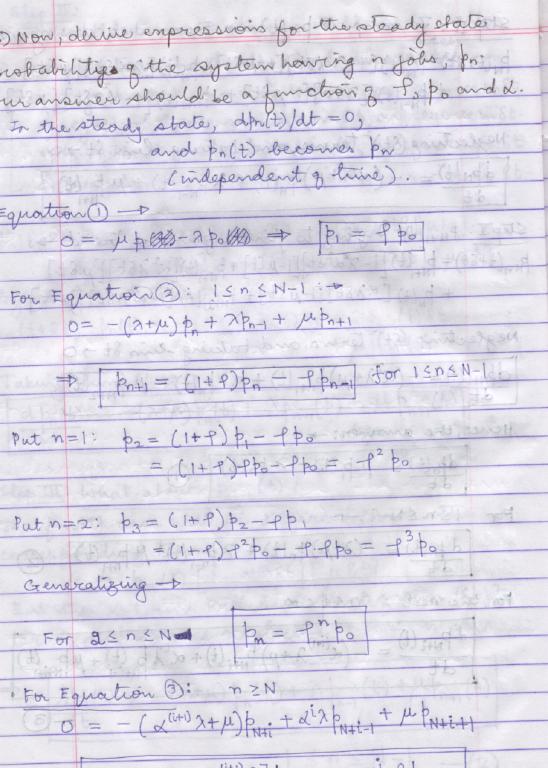 ) Now, derive expressions for the steady state
robability of the system having n jobs, pn.
ur answer should be a function of ρ, p₀ and α.
In the steady state, dpn(t)/dt = 0,
and pn(t) becomes pn
(independent of time).
Equation ① →
0 = μp₁ - λp₀ ⇒ p₁ = ρp₀
For Equation ②: 1 ≤ n ≤ N-1 :→
0 = -(λ+μ)pₙ + λpₙ₋₁ + μpₙ₊₁
⇒ pₙ₊₁ = (1+ρ)pₙ - ρpₙ₋₁ for 1≤n≤N-1
Put n=1: p₂ = (1+ρ)p₁ - ρp₀
= (1+ρ)ρp₀ - ρp₀ = ρ²p₀
Put n=2: p₃ = (1+ρ)p₂ - ρp₁
= (1+ρ)ρ²p₀ - ρ.ρp₀ = ρ³p₀
Generalizing →
For 2 ≤ n ≤ N pₙ = ρⁿp₀
. For Equation ③: n ≥ N
0 = -(α^(i+1)λ+μ)p_{N+i} + α^iλp_{N+i-1} + μp_{N+i+1}